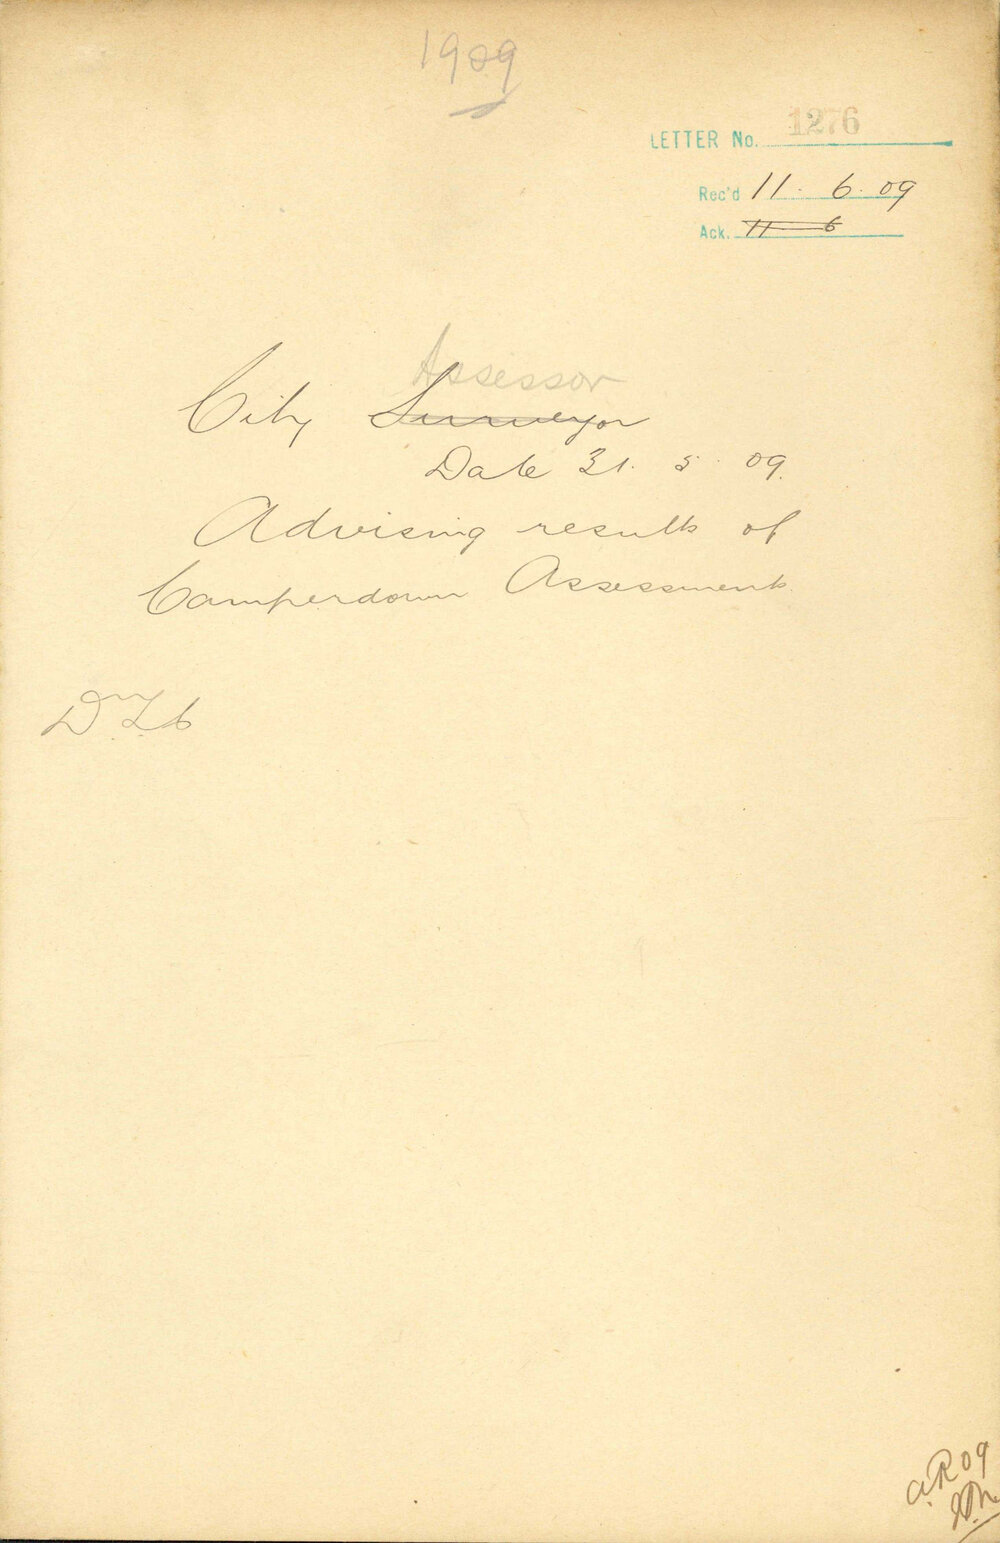 1909
LETTER No. 1276
Rec'd 11. 6. 09
Ack. 11 6
Assessor
City Surveyor
Date 31. 5. 09.
Advising results of
Camperdown Assessment.
a.R 09